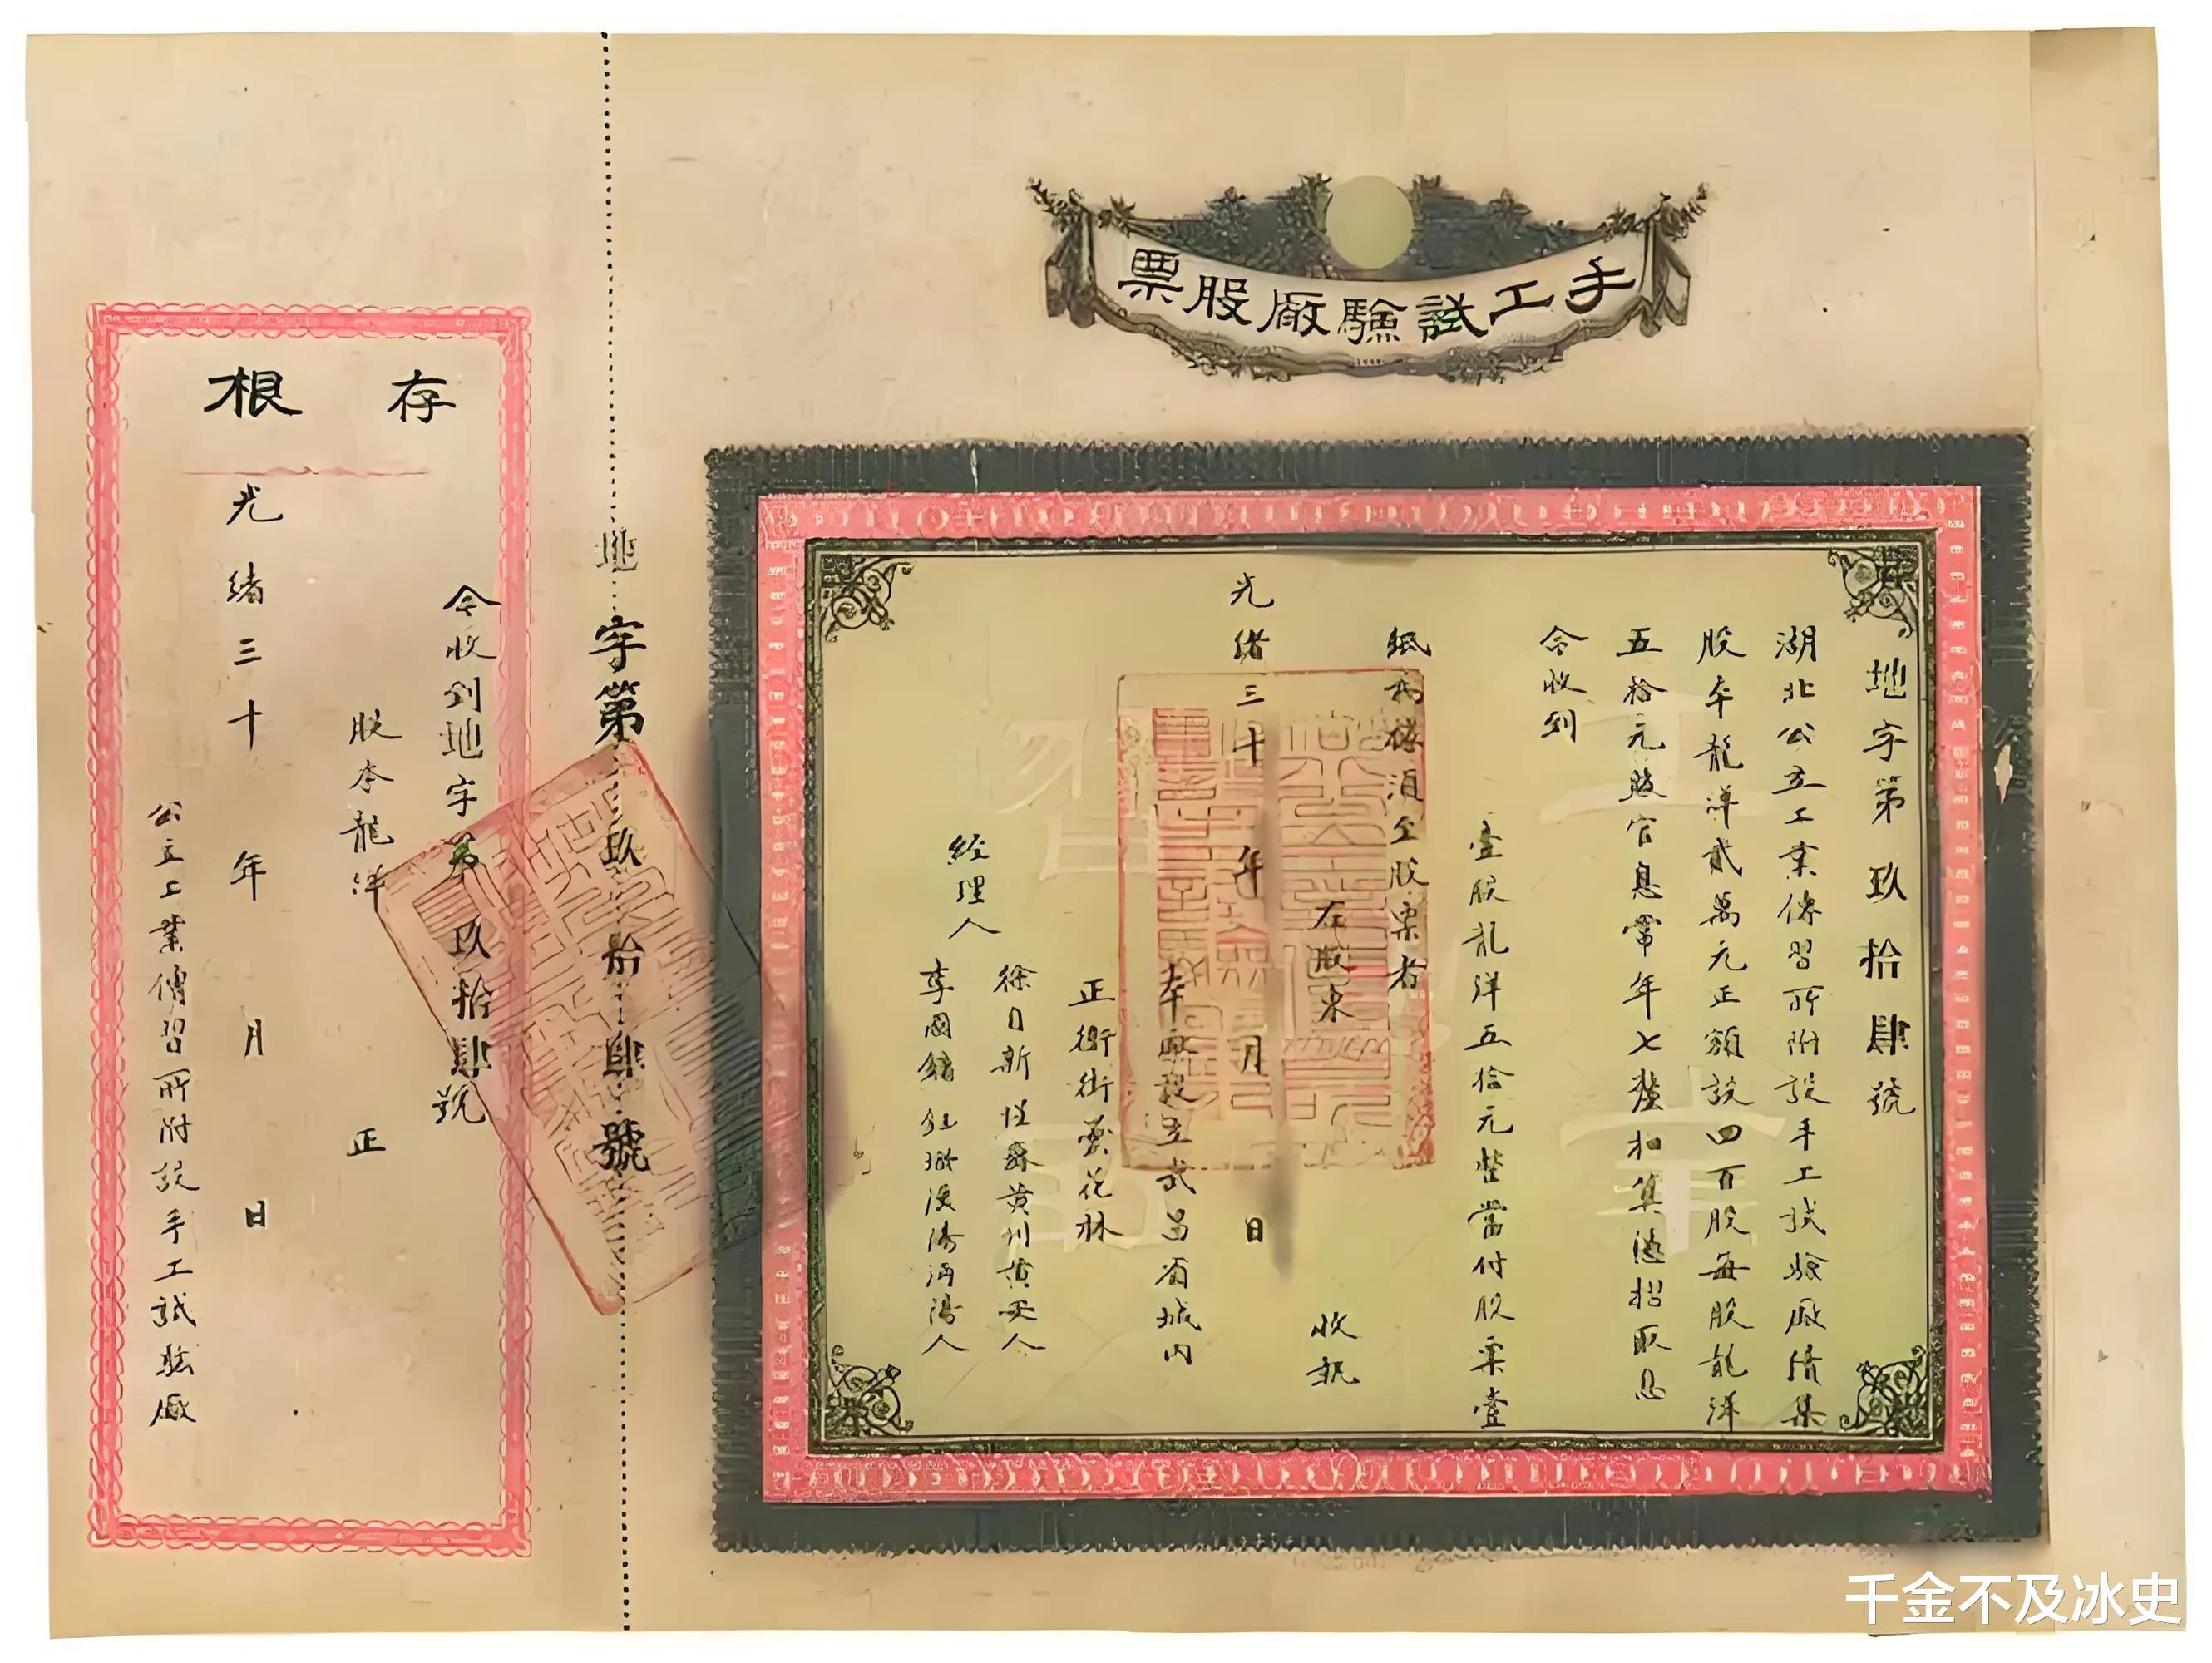 手工試驗廠股票
地字第玖拾肆號
湖北公立工業傳習所附設手工試驗廠済集
股本龍洋貳萬元正額設四百股每股龍洋
五拾元股官息常年七釐扣算憑摺取息
今收到
壹股龍洋五拾元整當付股票壹
紙為據須至股票者
右股東
收執
光緒三十年月日
本廠設立武昌省城內
正衛街蘭花林
經理人
徐日新
黃州黃安人
李國鏞
人
地字第玖拾肆號
存根
今收到地字第玖拾肆號
股本龍洋正
光緒三十年月日
公立工業傳習所附設手工試驗廠
千金不及冰史